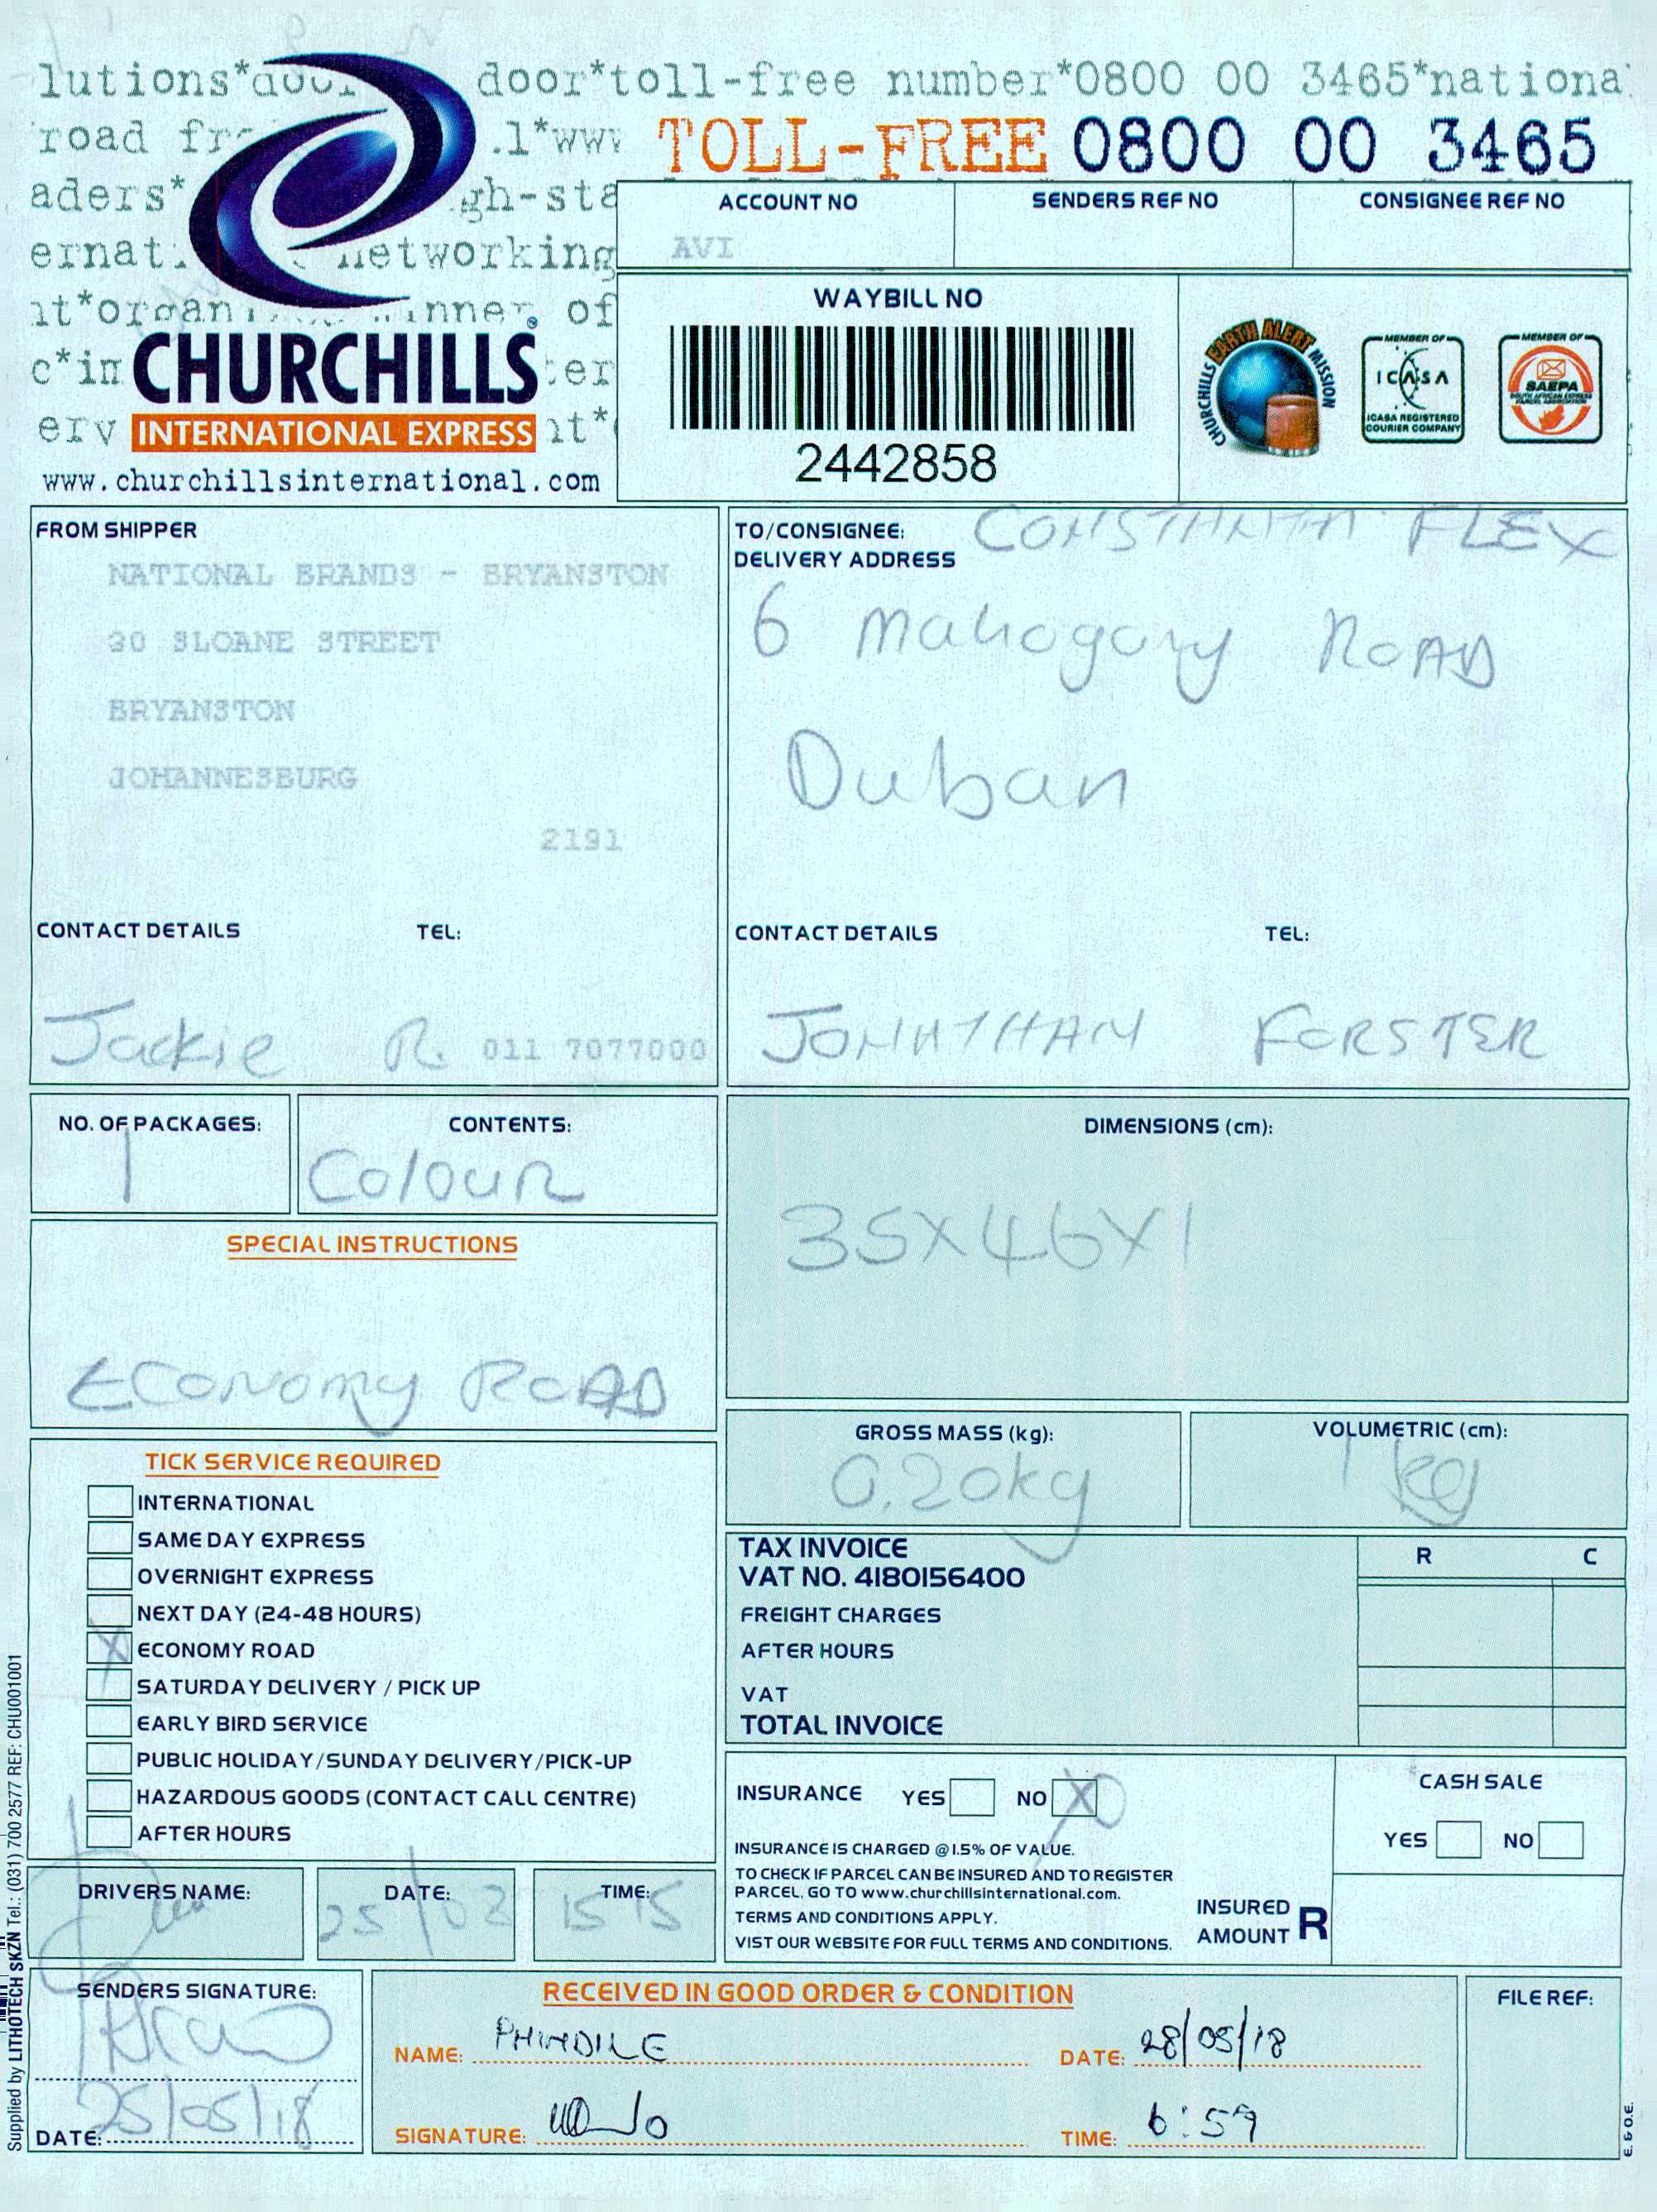 lutions*door door*toll-free number*0800 00 3465*national
road fr .l*www TOLL-FREE 0800 00 3465
aders* gh-sta
ernat networking
nt*organ inner of
c*in ter
erv nt*
CHURCHILLS
INTERNATIONAL EXPRESS
www.churchillsinternational.com
ACCOUNT NO SENDERS REF NO CONSIGNEE REF NO
AVI
WAYBILL NO
2442858
CHURCHILLS EARTH ALERT MISSION
MEMBER OF
ICASA
ICASA REGISTERED
COURIER COMPANY
MEMBER OF
SAEPA
SOUTH AFRICAN EXPRESS
PARCEL ASSOCIATION
FROM SHIPPER
NATIONAL BRANDS - BRYANSTON
30 SLOANE STREET
BRYANSTON
JOHANNESBURG
2191
CONTACT DETAILS TEL:
Jackie R. 011 7077000
TO/CONSIGNEE: CONSTANTIA FLEX
DELIVERY ADDRESS
6 Mahogany ROAD
Duban
CONTACT DETAILS TEL:
JONATHAN FORSTER
NO. OF PACKAGES: CONTENTS:
1 Colour
DIMENSIONS (cm):
35X46X1
SPECIAL INSTRUCTIONS
Economy ROAD
GROSS MASS (kg): VOLUMETRIC (cm):
0.20kg 1 kg
TICK SERVICE REQUIRED
INTERNATIONAL
SAME DAY EXPRESS
OVERNIGHT EXPRESS
NEXT DAY (24-48 HOURS)
X ECONOMY ROAD
SATURDAY DELIVERY / PICK UP
EARLY BIRD SERVICE
PUBLIC HOLIDAY/SUNDAY DELIVERY/PICK-UP
HAZARDOUS GOODS (CONTACT CALL CENTRE)
AFTER HOURS
TAX INVOICE R C
VAT NO. 4180156400
FREIGHT CHARGES
AFTER HOURS
VAT
TOTAL INVOICE
INSURANCE YES NO X
INSURANCE IS CHARGED @ 1.5% OF VALUE.
TO CHECK IF PARCEL CAN BE INSURED AND TO REGISTER
PARCEL, GO TO www.churchillsinternational.com.
TERMS AND CONDITIONS APPLY.
VIST OUR WEBSITE FOR FULL TERMS AND CONDITIONS.
INSURED
AMOUNT R
CASH SALE
YES NO
DRIVERS NAME: DATE: TIME:
25/02 1515
SENDERS SIGNATURE:
25/05/18
DATE:
RECEIVED IN GOOD ORDER & CONDITION
NAME: PHINDILE DATE: 28/05/18
SIGNATURE: TIME: 6:59
FILE REF:
E. & O.E.
Supplied by LITHOTECH SKZN Tel.: (031) 700 2577 REF: CHU001001